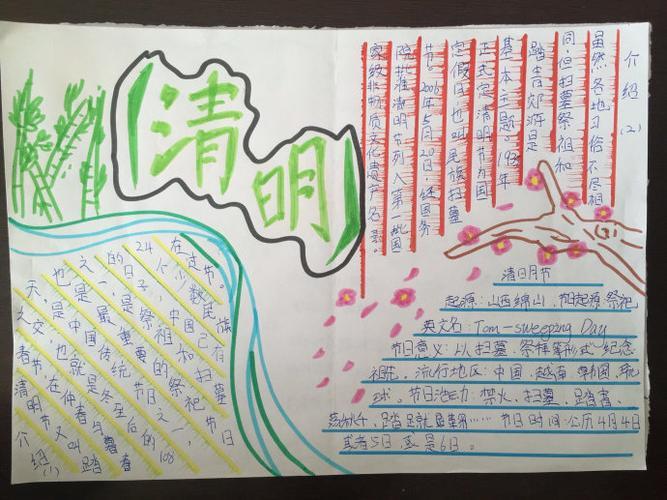 清明
介绍(2)
虽然各地习俗不尽相
同,但扫墓祭祖和
踏青郊游是
基本主题。年
正式定清明节为国
定假日,也叫民族扫墓
节。2006年5月20日,经国务
院批准清明节列入第一批国
家级非物质文化遗产名录。
介绍(1)
清明节又叫踏青
春节,在仲春与暮春
之交,也就是冬至后的108
天,是中国传统节日之一,
也是最重要的祭祀节日
之一,是祭祖和扫墓
的日子。中国已有
24个少数民族
在过节。
清明节
起源:山西绵山,节起源祭祀
英文名:Tom-sweeping Day
节日意义:以扫墓、祭拜等形式纪念
祖先。流行地区:中国,越南 韩国,
球。节日活动:禁火、扫墓、踏青、
荡秋千、踏足就是……节日时间:公历4月4日
或者5日或是6日。